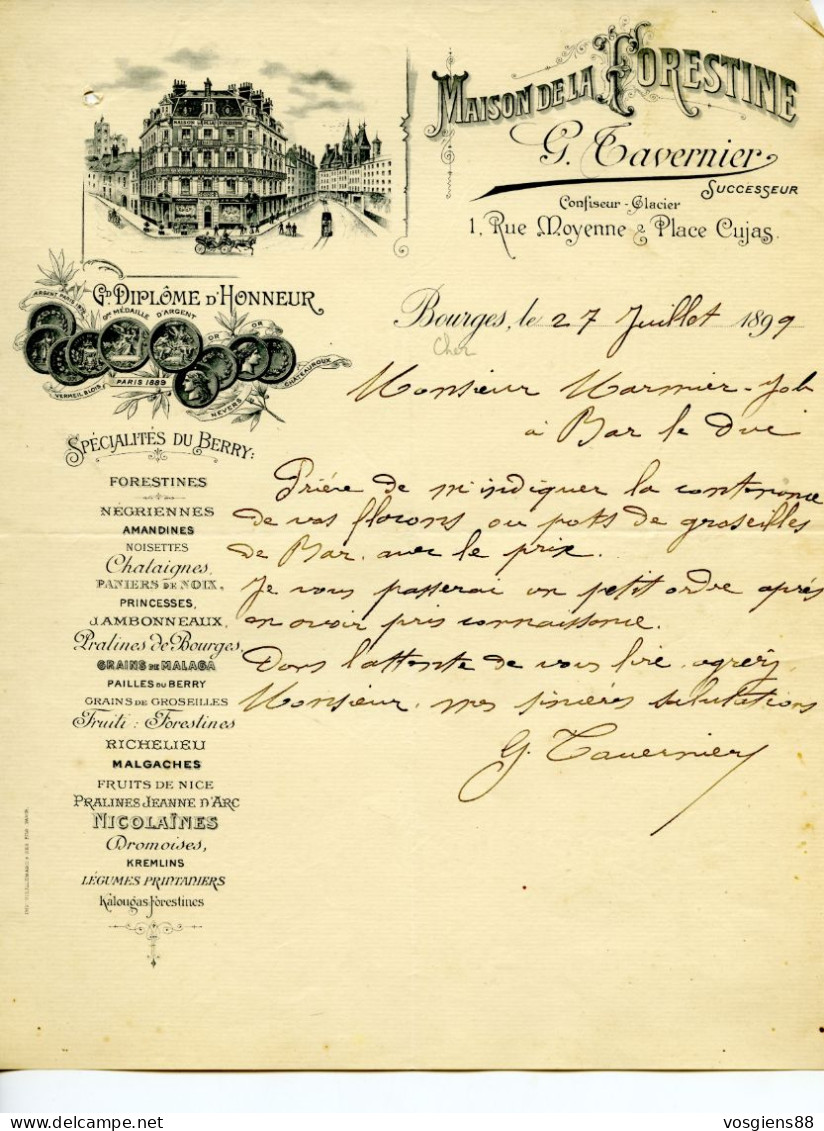 MAISON DE LA FORESTINE
G. Tavernier
SUCCESSEUR
Confiseur-Glacier
1, Rue Moyenne & Place Cujas.
MAISON DE LA FORESTINE
GD. DIPLÔME D'HONNEUR
ARGENT PARIS
GDE MÉDAILLE D'ARGENT
OR
OR
VERMEIL BLOIS
PARIS 1889
NEVERS
CHATEAUROUX
Bourges, le 27 Juillet 1899
Cher
Monsieur Marmier-Job
à Bar le Duc
Prière de m'indiquer la contenance
de vos flacons ou pots de groseilles
de Bar, avec le prix.
Je vous passerai un petit ordre après
en avoir pris connaissance.
Dans l'attente de vous lire, agréez,
Monsieur, mes sincères salutations
G. Tavernier
SPÉCIALITÉS DU BERRY:
FORESTINES
NÉGRIENNES
AMANDINES
NOISETTES
Chataignes,
PANIERS DE NOIX,
PRINCESSES,
JAMBONNEAUX,
Pralines de Bourges,
GRAINS DE MALAGA
PAILLES DU BERRY
GRAINS DE GROSEILLES
Fruiti: Forestines
RICHELIEU
MALGACHES
FRUITS DE NICE
PRALINES JEANNE D'ARC
NICOLAÏNES
Dromoises,
KREMLINS
LÉGUMES PRINTANIERS
Kalougas-forestines
vosgiens88